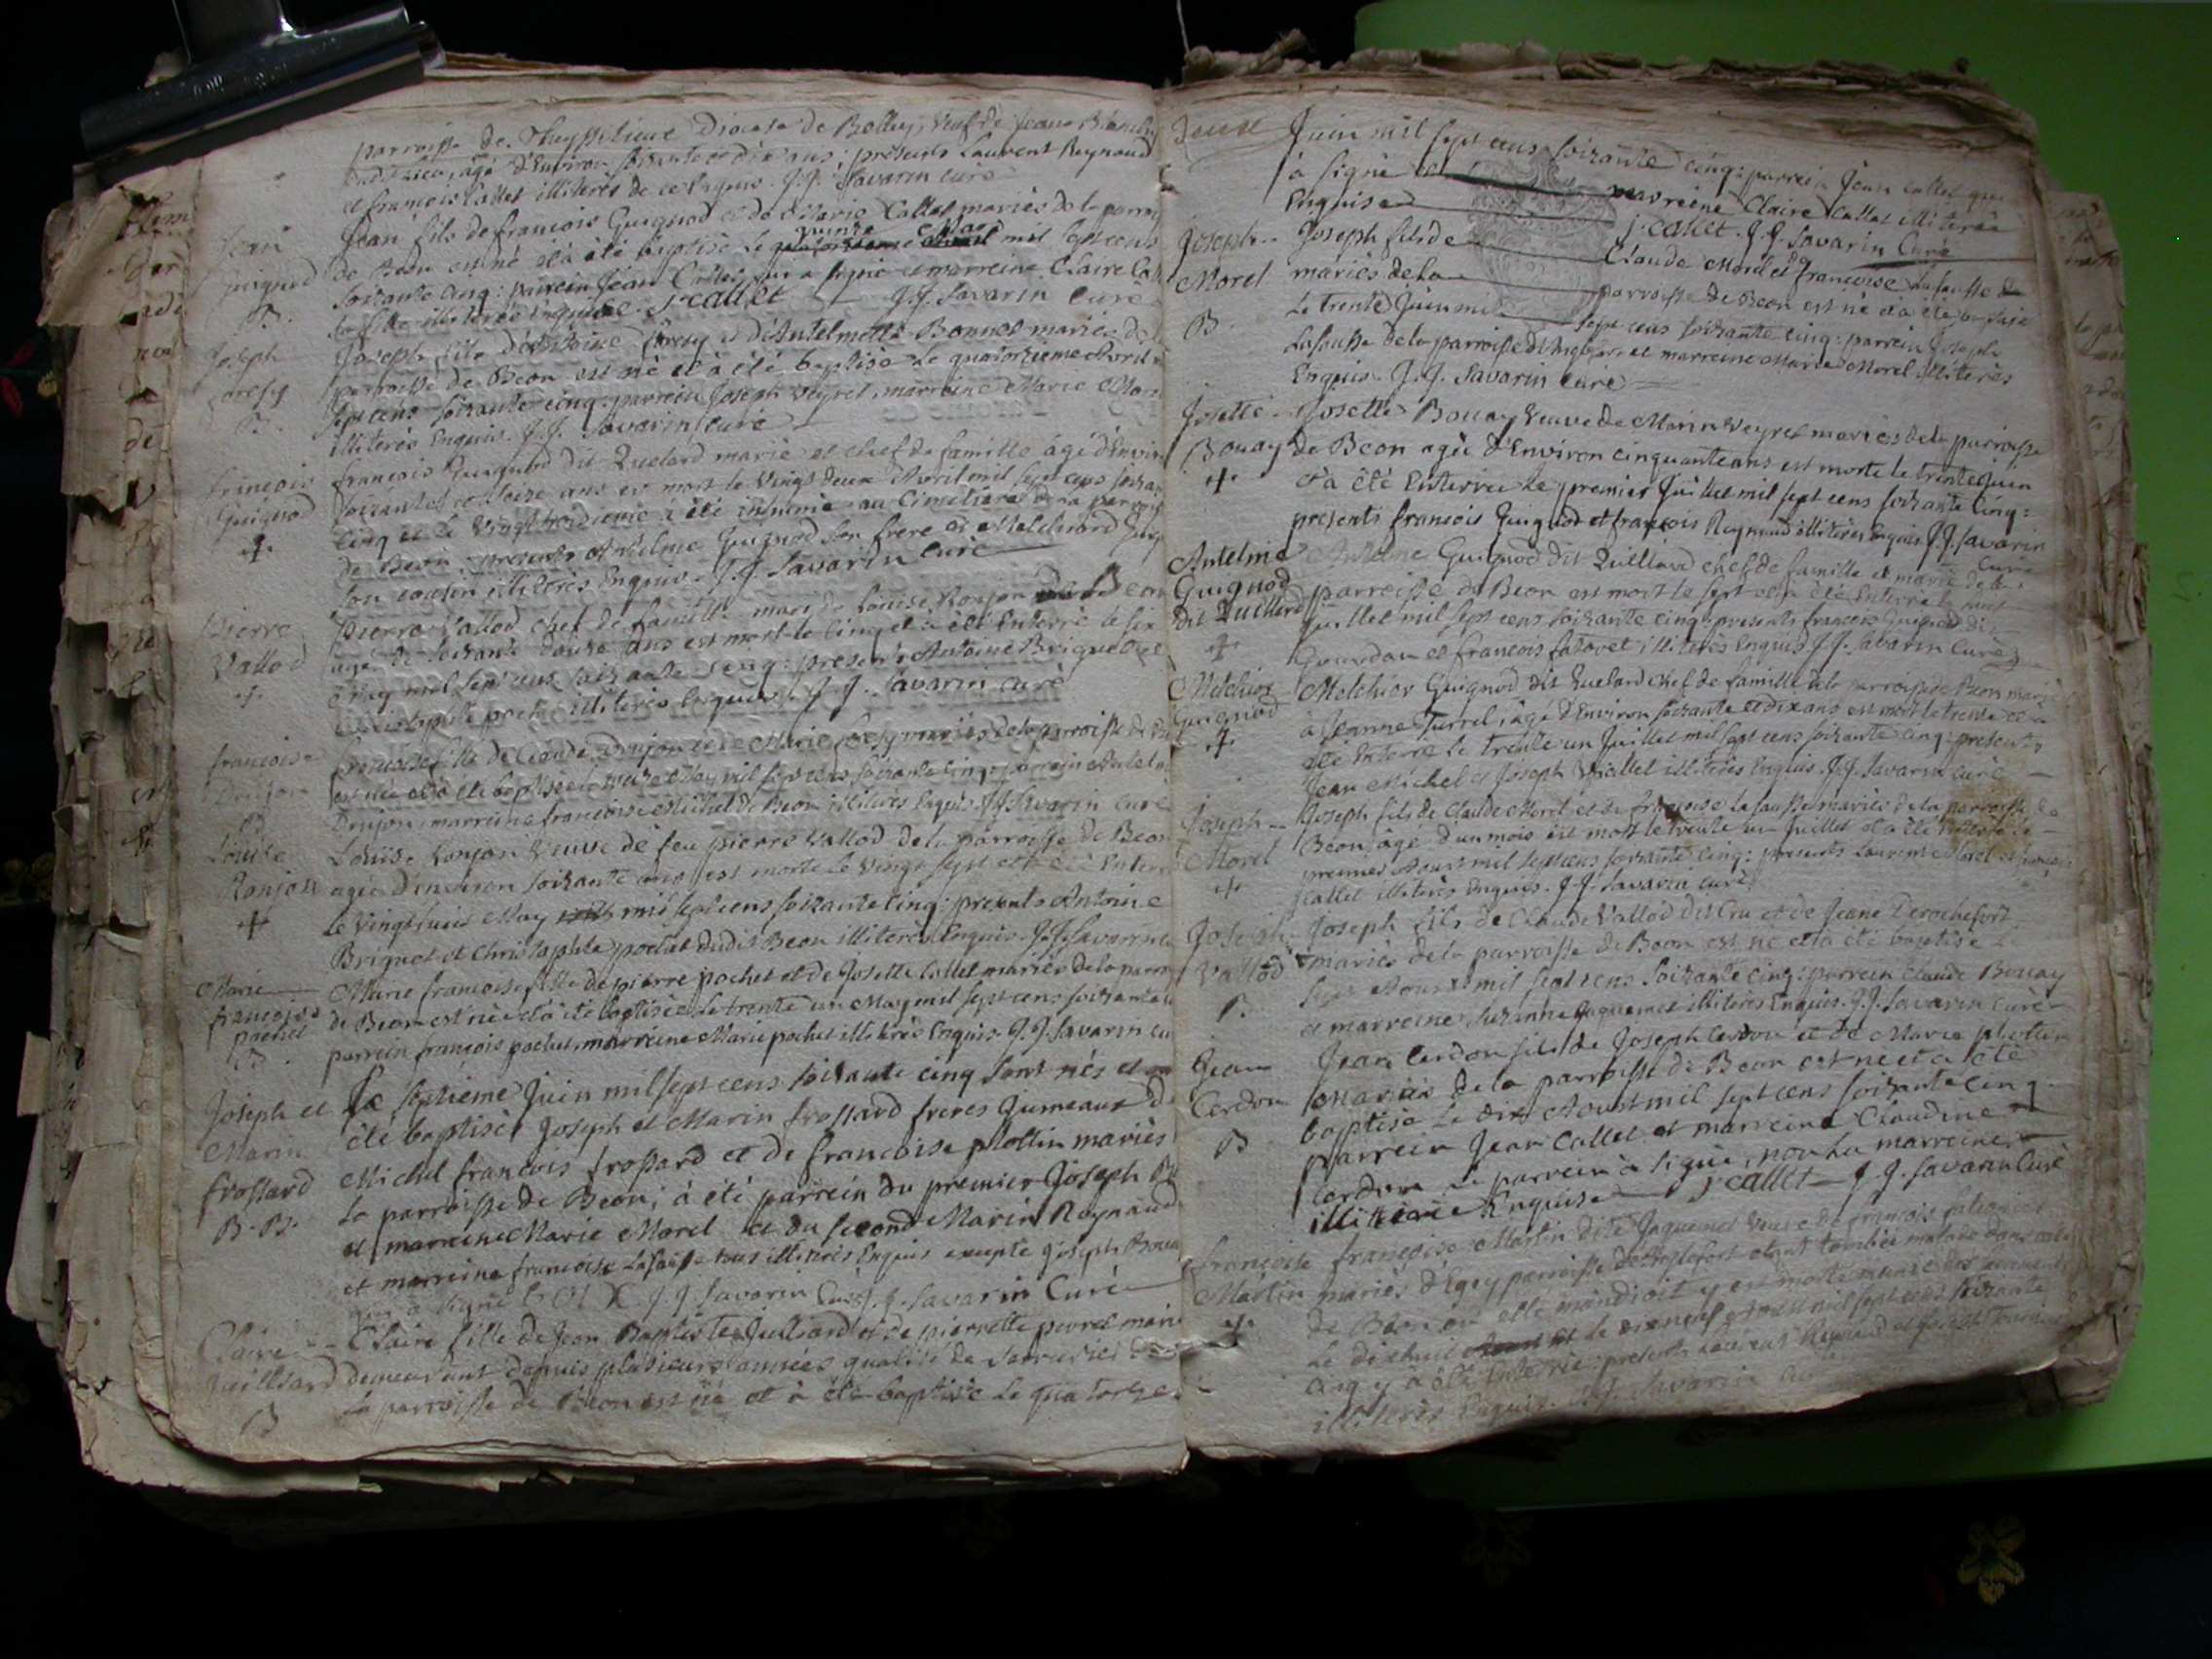 parroisse de Diocese de Belley, veuf de Jeane
agé d'Environ soixante et dix ans; présents Laurent Reynaud
et francois Callet illiterés de ce Enquis. J.J. Savarin curé
Jean
Guignod
B.
Jean fils de francois Guignod et de Marie Callet mariés de la parroi
de Beon est né et à été baptisé le quinze Mars mil sept cens
soixante cinq: parrein Jean Callet qui a signé et marreine Claire Ca
sa fille illiterée Enquise. J callet J.J. Savarin Curé
Joseph
B.
Joseph fils d'Antoine et d'Antelmette Bonnet mariés de
parroisse de Beon est né et à été baptisé le quatorzieme Avril
sept cens soixante cinq: parrein Joseph Veyret, marreine Marie
illiterés Enquis. J.J. Savarin curé
francois
Guignod
+
francois Guignod dit Quelard marié et chef de famille agé d'Envir
soixante et ans est mort le vingt deux Avril mil sept cens soixan
cinq et le vingt troisieme à été inhumé au Cimetiere de la parroiss
de Beon, presents Antelme Guignod son frere et Melchiord Guig
son cousin illiterés Enquis. J.J. Savarin Curé
Pierre
Vallod
+
Pierre Vallod chef de famille mari de Louise Ronjon de Beon
agé de soixante douze ans est mort le cinq et à été Enterré le six
May mil sept cens soixante cinq: presents Antoine Briguet et
Christophle pochet illiterés Enquis. J.J. Savarin curé
francoise
Drujon
B
francoise fille de Claude Drujon et de Marie mariés de la parroisse de
est née et à été baptisée le May mil sept cens soixante cinq: parrein
Drujon, marreine francoise Michel de Beon illiterés Enquis. J.J. Savarin curé
Louise
Ronjon
+
Louise Ronjon veuve de feu pierre Vallod de la parroisse de Beon
agée d'environ soixante ans est morte le vingt sept et à été Enterr
le vingt huit May mil sept cens soixante cinq: presents Antoine
Briguet et Christophle pochet dudit Beon illiterés Enquis. J.J. Savarin
Marie
francoise
pochet
B.
Marie francoise fille de pierre pochet et de Josette Callet mariés de la parroi
de Beon est née et à été baptisée le trente un May mil sept cens soixante
parrein francois pochet, marreine Marie pochet illiterés Enquis. J.J. Savarin cu
Joseph et
Marin
frossard
B. B.
Le septieme Juin mil sept cens soixante cinq sont nés et
été baptisés Joseph et Marin frossard freres Jumeaux de
Michel francois frossard et de francoise plottin mariés
la parroisse de Beon; à été parrein du premier Joseph B
et marreine Marie Morel et du second Marin Reynaud
et marreine francoise Lasausse tous illiterés Enquis excepté Joseph Bouay
qui à signé J.J. Savarin Curé J.J. Savarin Curé
Claire
Juilliard
B
Claire fille de Jean Baptiste Juilliard et de pierrette peyret marié
demeurant depuis plusieurs années qualité de serrurier dans
la parroisse de Beon est née et à été baptisée le quatorze
Juin mil sept cens soixante cinq: parrein Jean Callet qui
à signé et marreine Claire Callet illiterée
Enquise J. callet. J.J. Savarin Curé
Joseph
Morel
B
Joseph fils de Claude Morel et de francoise Lasausse
mariés de la parroisse de Beon est né et à été baptisé
le trente Juin mil sept cens soixante cinq: parrein Joseph
Lasausse de la parroisse d'Anglefort et marreine Marie Morel illiterés
Enquis. J.J. Savarin Curé
Josette
Bouay
+
Josette Bouay veuve de Marin Veyret mariés de la parroisse
de Beon agée d'Environ cinquante ans est morte le trente Juin
et à été Enterrée le premier Juillet mil sept cens soixante cinq:
presents francois Guignod et francois Reynaud illiterés Enquis. J.J. Savarin
Curé
Antelme
Guignod
dit Quellard
+
Antelme Guignod dit Quellard chef de famille et marié de la
parroisse de Beon est mort le sept et à été Enterré le huit
Juillet mil sept cens soixante cinq: presents francois Guignod dit
Gourdan et francois illiterés Enquis. J.J. Savarin Curé
Melchior
Guignod
+
Melchior Guignod dit Quelard chef de famille de la parroisse de Beon marié
à Jeanne Turrel, agé d'Environ soixante et dix ans est mort le trente et à
été Enterré le trente un Juillet mil sept cens soixante cinq: presents
Jean Michel et Joseph Vuallet illiterés Enquis. J.J. Savarin curé
Joseph
Morel
+
Joseph fils de Claude Morel et de francoise Lasausse mariés de la parroisse de
Beon, agé d'un mois est mort le trente un Juillet et à été Enterré le
premier Aoust mil sept cens soixante cinq: presents Laurent Morel et francois
Callet illiterés Enquis. J.J. Savarin curé
Joseph
Vallod
B
Joseph fils de Claude Vallod dit Cru et de Jeane Derochefort
mariés de la parroisse de Beon est né et à été baptisé le
Aoust mil sept cens soixante cinq: parrein Claude Bouay
et marreine Suzanne Jaquemet illiterés Enquis. J.J. Savarin Curé
Jean
Cerdon
B
Jean Cerdon fils de Joseph Cerdon et de Marie plottin
mariés de la parroisse de Beon est né et à été
baptisé le dix Aoust mil sept cens soixante cinq.
parrein Jean Callet et marreine Claudine
Cerdon le parrein à signé, non la marreine
illiterée Enquise J callet J.J. Savarin Curé
francoise
Martin
+
francoise Martin dite Jaquemet veuve de francois
mariés d'Egey parroisse d'Anglefort etant tombée malade dans
de Beon ou elle mandioit y est morte munie des sacrements
le dixhuit et le dixneuf Aoust mil sept cens soixante
cinq y à été Enterrée: presents Laurent Reynaud et
illiterés Enquis. J.J. Savarin curé